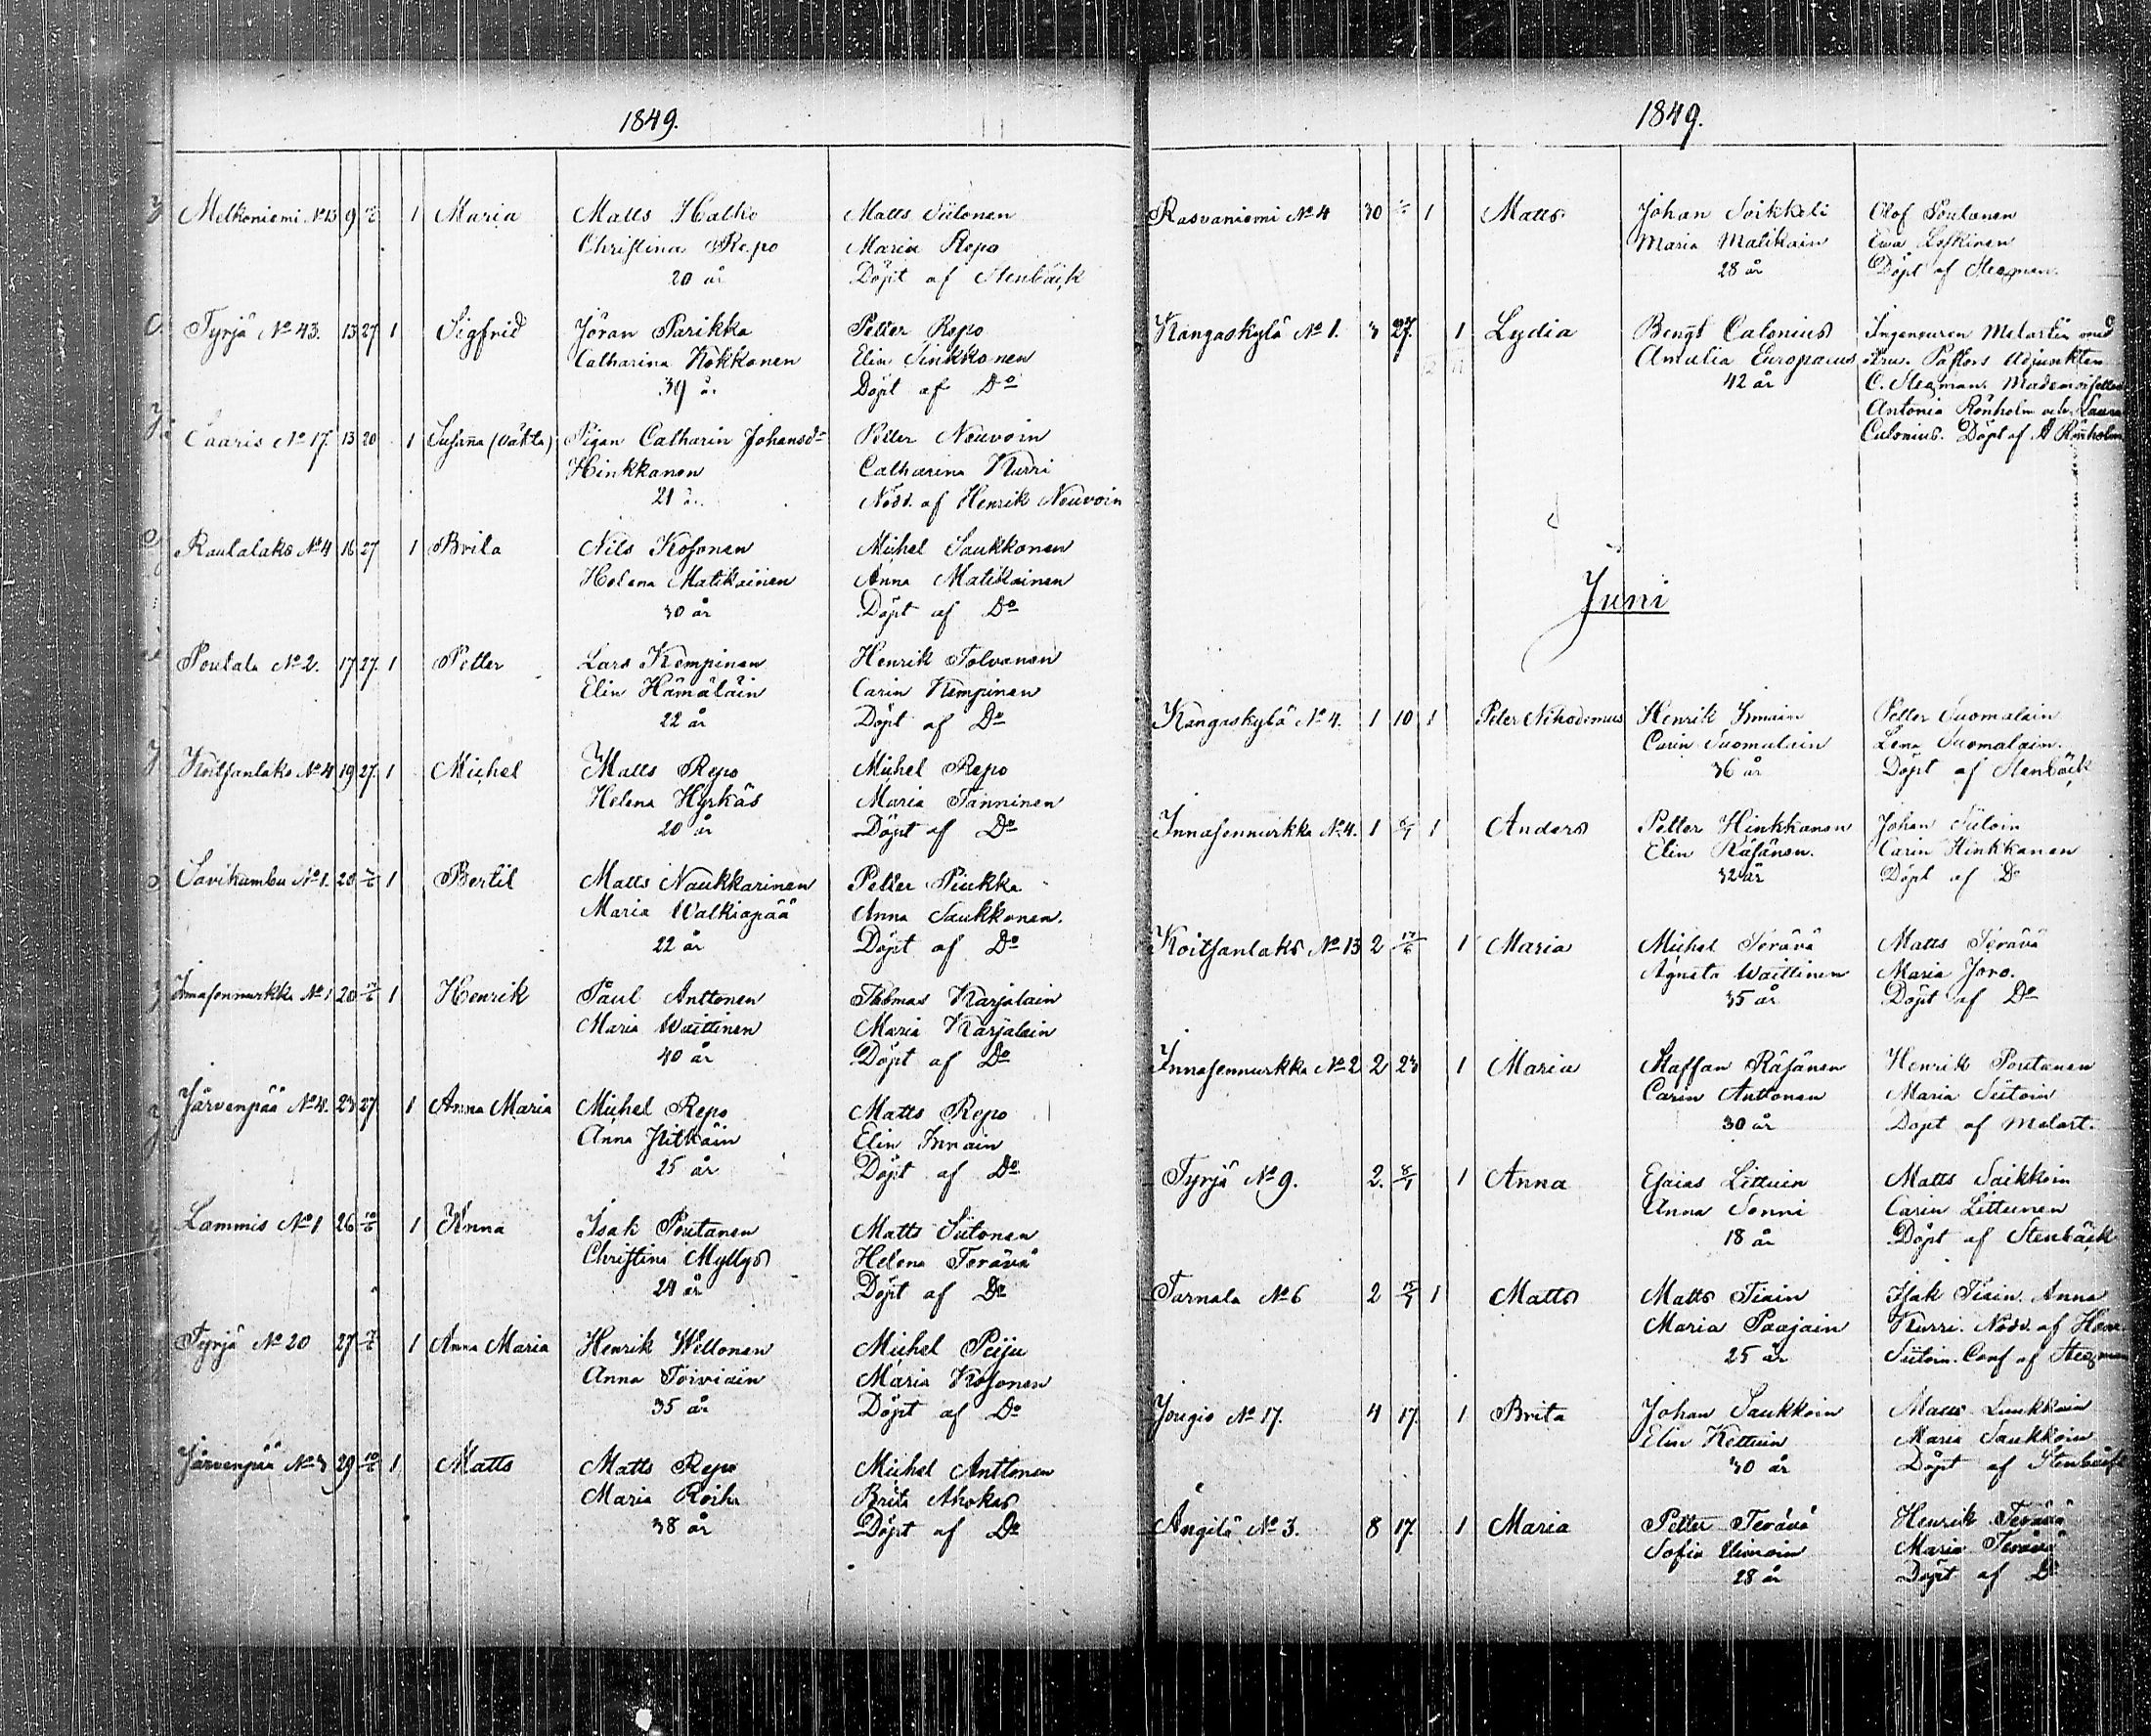 1849.
Melkoniemi No 13 9 1 Maria Matts Halko Matts Siitonen
Christina Repo Maria Repo
20 år Döpt af Stenbäck
Tyrjä No 43. 13 27 1 Sigfrid Jöran Parikka Petter Repo
Catharina Kokkonen Elin Sinkkonen
39 år Döpt af Do
Saaris No 17 13 20 1 Susanna (oäkta) Pigan Catharin Johansdr Petter Nouvoin
Hinkkanen Catharina Kurri
21 å. Nödd. af Henrik Nouvoin
Rautalaks No 4 16 27 1 Brita Nils Kosonen Michel Saukkonen
Helena Matikainen Anna Matikainen
30 år Döpt af Do
Poutala No 2. 17 27. 1 Petter Lars Kempinen Henrik Tolvanen
Elin Hämäläin Carin Kempinen
22 år Döpt af Do
Koitsanlaks No 4 19 27. 1 Michel Matts Repo Michel Repo
Helena Hyrkäs Maria Tanninen
20 år Döpt af Do
Savikumbu No 1. 20 1 Bertil Matts Naukkarinen Petter Piukka
Maria Walkiapää Anna Saukkonen.
22 år Döpt af Do
Innasennurkka No 1 20 17/6 1 Henrik Paul Anttonen Thomas Karjalain
Maria Waittinen Maria Karjalain
40 år Döpt af Do
Järvenpää No 4. 23 27 1 Anna Maria Michel Repo Matts Repo
Anna Pitkäin Elin Innain
25 år Döpt af Do
Lammis No 1 26 10/6 1 Anna Isak Poutanen Matts Siitonen
Christina Myllys Helena Terävä
24 år Döpt af Do
Tyrjä No 20 27 1 Anna Maria Henrik Weltonen Michel Peiju
Anna Toiviain Maria Kosonen
35 år Döpt af Do
Järvenpää No 3 29 10/6 1 Matts Matts Repo Michel Anttonen
Maria Roiha Brita Ahokas
38 år Döpt af Do
1849.
Rasvaniemi No 4 30 1 Matts Johan Soikkeli Olof Poutanen
Maria Matikain Ewa Leskinen
28 år Döpt af Stegman.
Kangaskylä No 1. 3 27. 1 Lydia Bengt Calonius Ingeneuren Melartin med
Amalia Europaeus stru. Pastors Adjunkten
42 år C. Stegman. Mademoiselles
Antonia Rönholm och Laura
Calonius. Döpt af A Rönholm
Juni
Kangaskylä No 4. 1 10 1 Peter Nikodemus Henrik Innain Petter Suomalain
Carin Suomalain Lena Suomalain.
36 år Döpt af Stenbäck
Innasennurkka No 4. 1 1 Anders Petter Hinkkanen Johan Siitoin
Elin Räsänen. Carin Hinkkanen
32 år Döpt af Do
Koitsanlaks No 13 2 17/6 1 Maria Michel Terävä Matts Terävä
Agneta Waittinen Maria Joro.
35 år Döpt af Do
Innasennurkka No 2 2 23 1 Maria Staffan Räsänen Henrik Poutanen
Carin Anttonen Maria Siitoin
30 år Döpt af Melart.
Tyrjä No 9. 2. 8/7 1 Anna Esaias Littuin Matts Saikkoin
Anna Sonni Carin Littunen
18 år Döpt af Stenbäck
Tarnala No 6 2 15/7 1 Matts Matts Tiain Isak Tiain. Anna
Maria Paajain Kurri. Nödd. af Henr.
25 år Siitoin. Conf af Stegman
Jougio No 17. 4 17. 1 Brita Johan Saukkoin Matts Luukkain
Elin Kettuin Maria Saukkoin
30 år Döpt af Stenbäck
Ängilä No 3. 8 17. 1 Maria Petter Terävä Henrik Terävä
Sofia Maria Terävä
28 år Döpt af Do